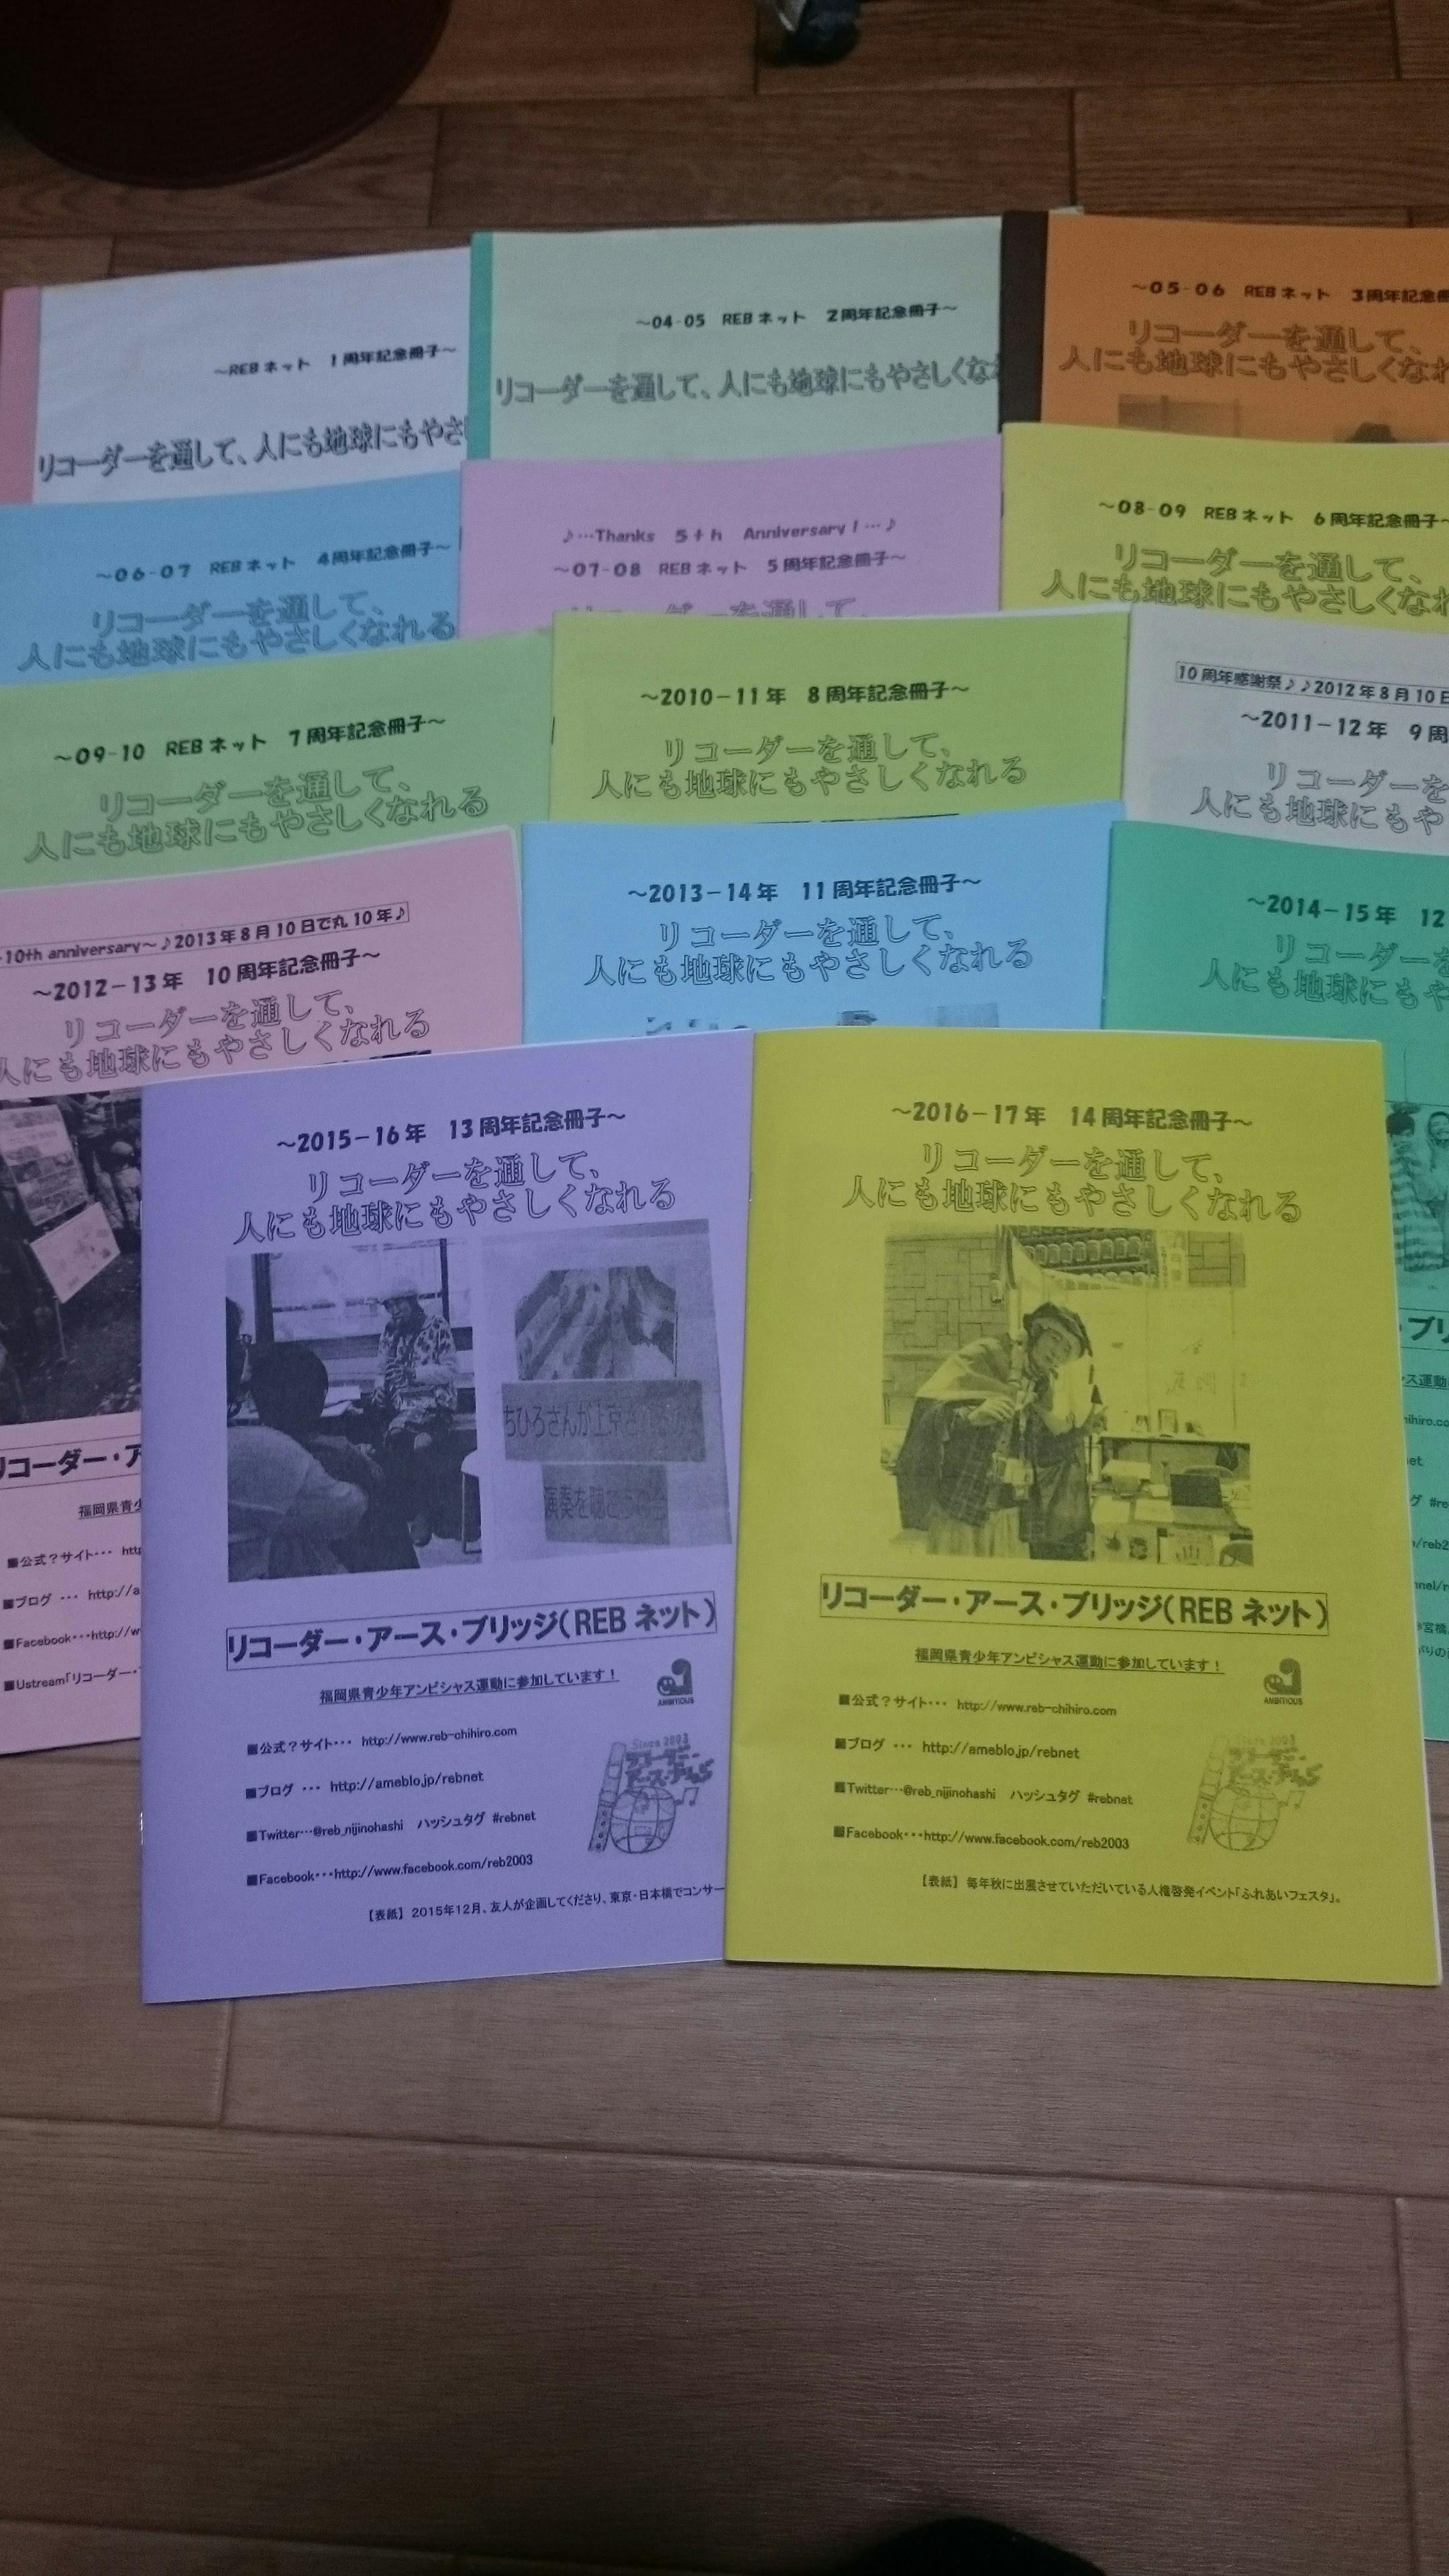 ～REBネット　1周年記念冊子～
リコーダーを通して、人にも地球にもやさ
～04-05　REBネット　2周年記念冊子～
リコーダーを通して、人にも地球にもやさしくな
～05-06　REBネット　3周年記念冊
リコーダーを通して、
人にも地球にもやさしくなれ
～06-07　REBネット　4周年記念冊子～
リコーダーを通して、
人にも地球にもやさしくなれる
♪…Thanks　5th　Anniversary！…♪
～07-08　REBネット　5周年記念冊子～
リコーダーを通して、
～08-09　REBネット　6周年記念冊子～
リコーダーを通して、
人にも地球にもやさしくなれ
～09-10　REBネット　7周年記念冊子～
リコーダーを通して、
人にも地球にもやさしくなれる
～2010－11年　8周年記念冊子～
リコーダーを通して、
人にも地球にもやさしくなれる
10周年感謝祭♪♪2012年8月10日
～2011－12年　9周
リコーダーを
人にも地球にもや
10th anniversary～♪2013年8月10日で丸10年♪
～2012－13年　10周年記念冊子～
リコーダーを通して、
人にも地球にもやさしくなれる
リコーダー・ア
福岡県青少
■公式？サイト･･･ http
■ブログ ･･･ http://a
■Facebook･･･http://w
■Ustream「リコーダー・
～2013－14年　11周年記念冊子～
リコーダーを通して、
人にも地球にもやさしくなれる
～2014－15年　12
リコーダーを
人にも地球にもや
・ブリ
ス運動
hihiro.co
et
グ #re
/reb2
nnel/r
～2015－16年　13周年記念冊子～
リコーダーを通して、
人にも地球にもやさしくなれる
ちひろさんが上京
演奏を聴こう
リコーダー・アース・ブリッジ（REBネット）
福岡県青少年アンビシャス運動に参加しています！
AMBITIOUS
■公式？サイト･･･ http://www.reb-chihiro.com
■ブログ ･･･ http://ameblo.jp/rebnet
■Twitter･･･@reb_nijinohashi　ハッシュタグ #rebnet
■Facebook･･･http://www.facebook.com/reb2003
Since 2003
リコーダー・
アース・ブリッジ
【表紙】2015年12月、友人が企画してくださり、東京・日本橋でコンサー
～2016－17年　14周年記念冊子～
リコーダーを通して、
人にも地球にもやさしくなれる
リコーダー・アース・ブリッジ（REBネット）
福岡県青少年アンビシャス運動に参加しています！
AMBITIOUS
■公式？サイト･･･ http://www.reb-chihiro.com
■ブログ ･･･ http://ameblo.jp/rebnet
■Twitter･･･@reb_nijinohashi　ハッシュタグ #rebnet
■Facebook･･･http://www.facebook.com/reb2003
Since 2003
リコーダー・
アース・ブリッジ
【表紙】毎年秋に出展させていただいている人権啓発イベント「ふれあいフェスタ」。